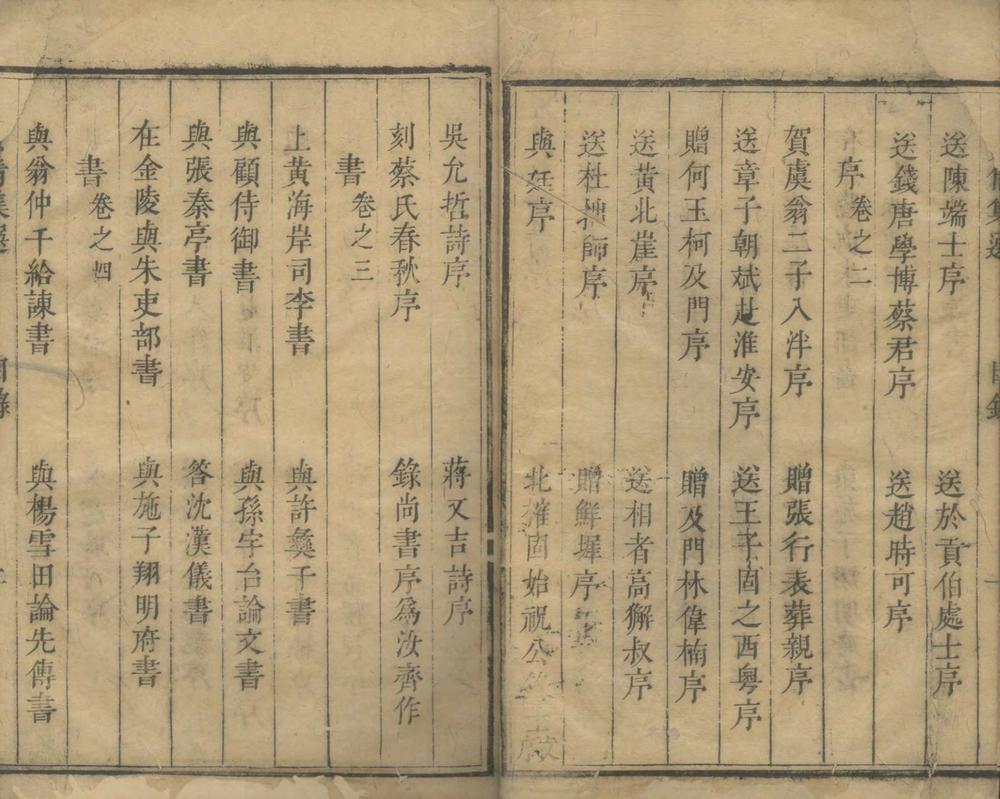 送陳端士序 送於貢伯處士序
送錢唐學博蔡君序 送趙時可序
序 卷之二
賀虞翁二子入泮序 贈張行表葬親序
送章子朝斌赴淮安序 送王子固之西粤序
贈何玉柯及門序 贈及門林偉楠序
送黃北崖序 送相者高獬叔序
送杜拙師序 贈鮮墀序
與廷序 北摧固始祝公
吳允哲詩序 蔣又吉詩序
刻蔡氏春秋序 錄尚書序為汝齊作
書 卷之三
上黃海岸司李書 與許彝千書
與顧侍御書 與孫宇台論文書
與張秦亭書 答沈漢儀書
在金陵與朱吏部書 與施子翔明府書
書 卷之四
與翁仲千給諫書 與楊雪田論先傳書